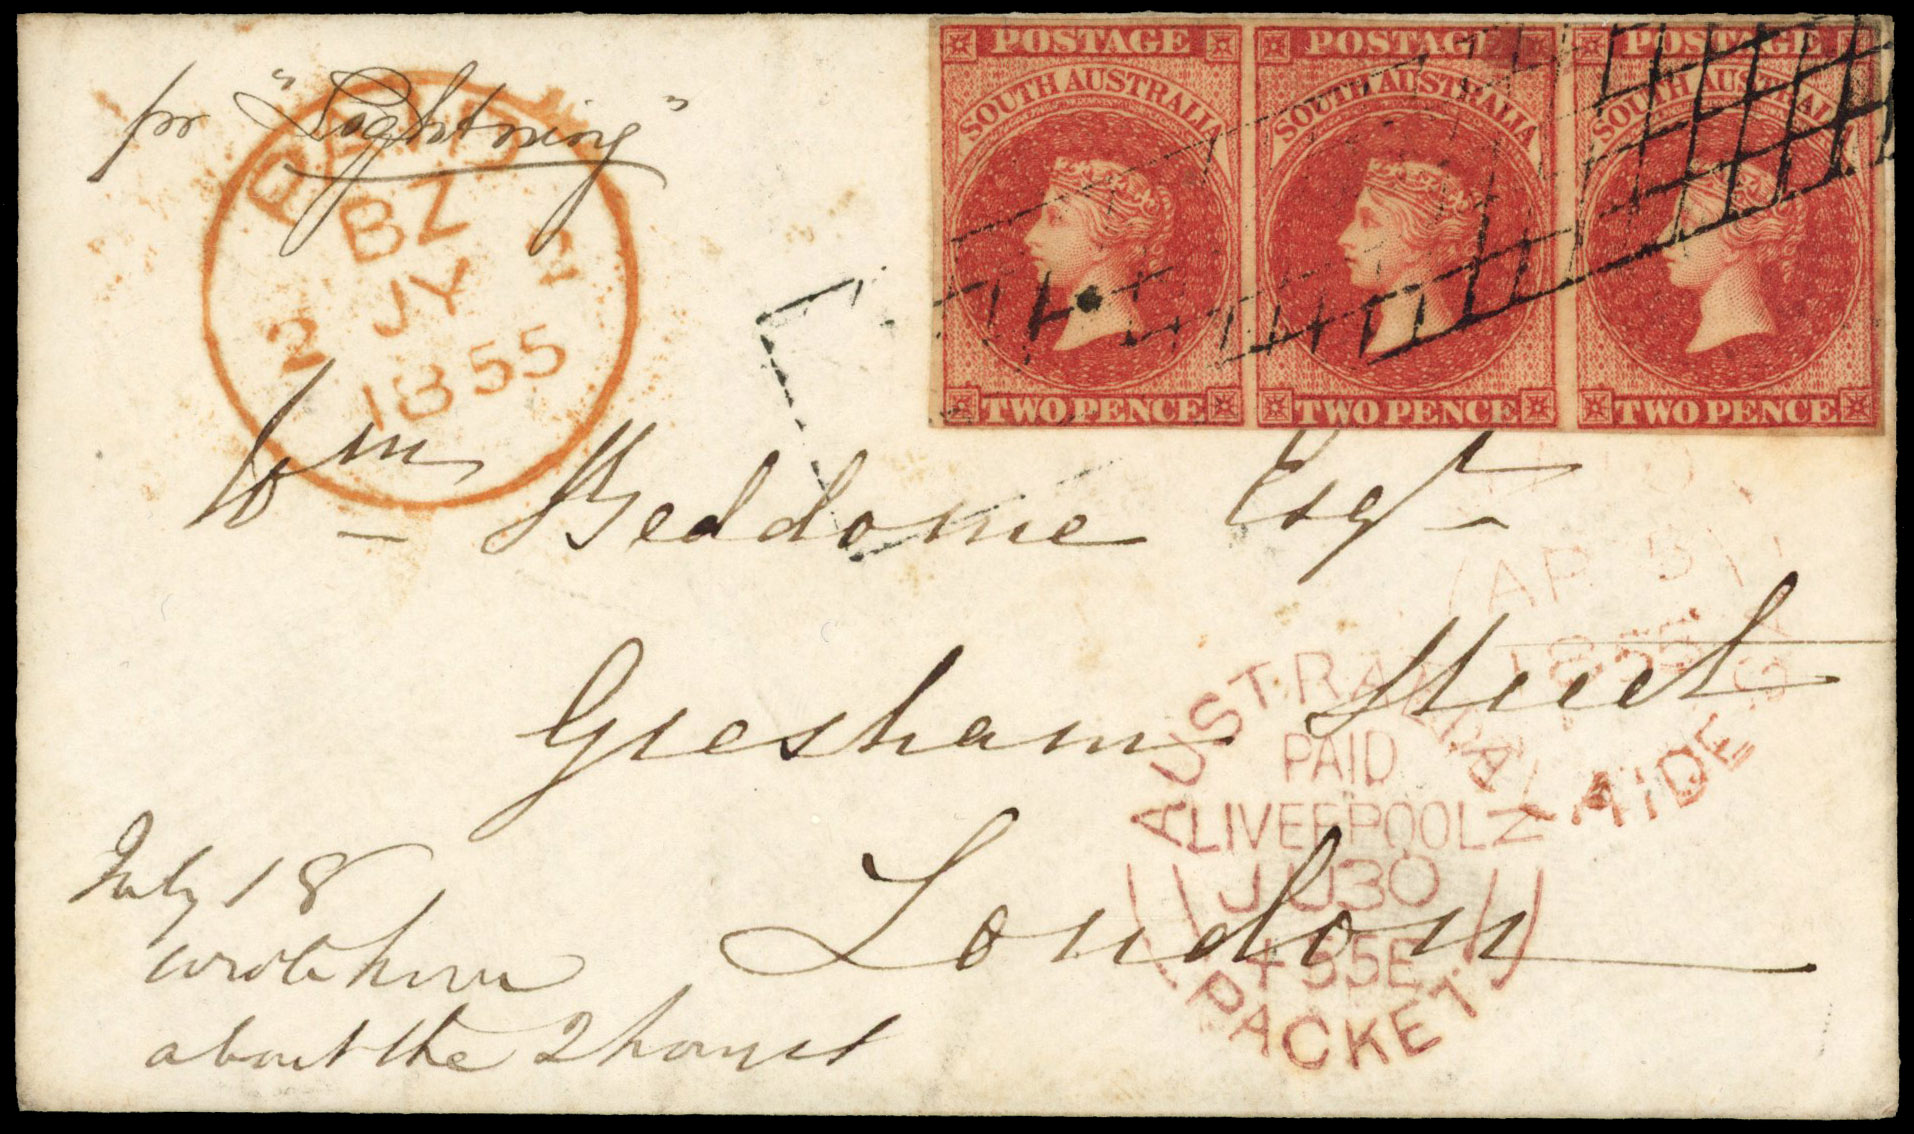 pr "Lightning"
PAID
BZ
2 JY 2
1855
POSTAGE
SOUTH AUSTRALIA
TWO PENCE
POSTAGE
SOUTH AUSTRALIA
TWO PENCE
POSTAGE
SOUTH AUSTRALIA
TWO PENCE
Wm Beddome Esqr
Gresham Street
London
AP 3
1855
AUSTRALIAN
PAID
LIVERPOOL
JU30
55E
PACKET
July 18
wrote him
about the 2